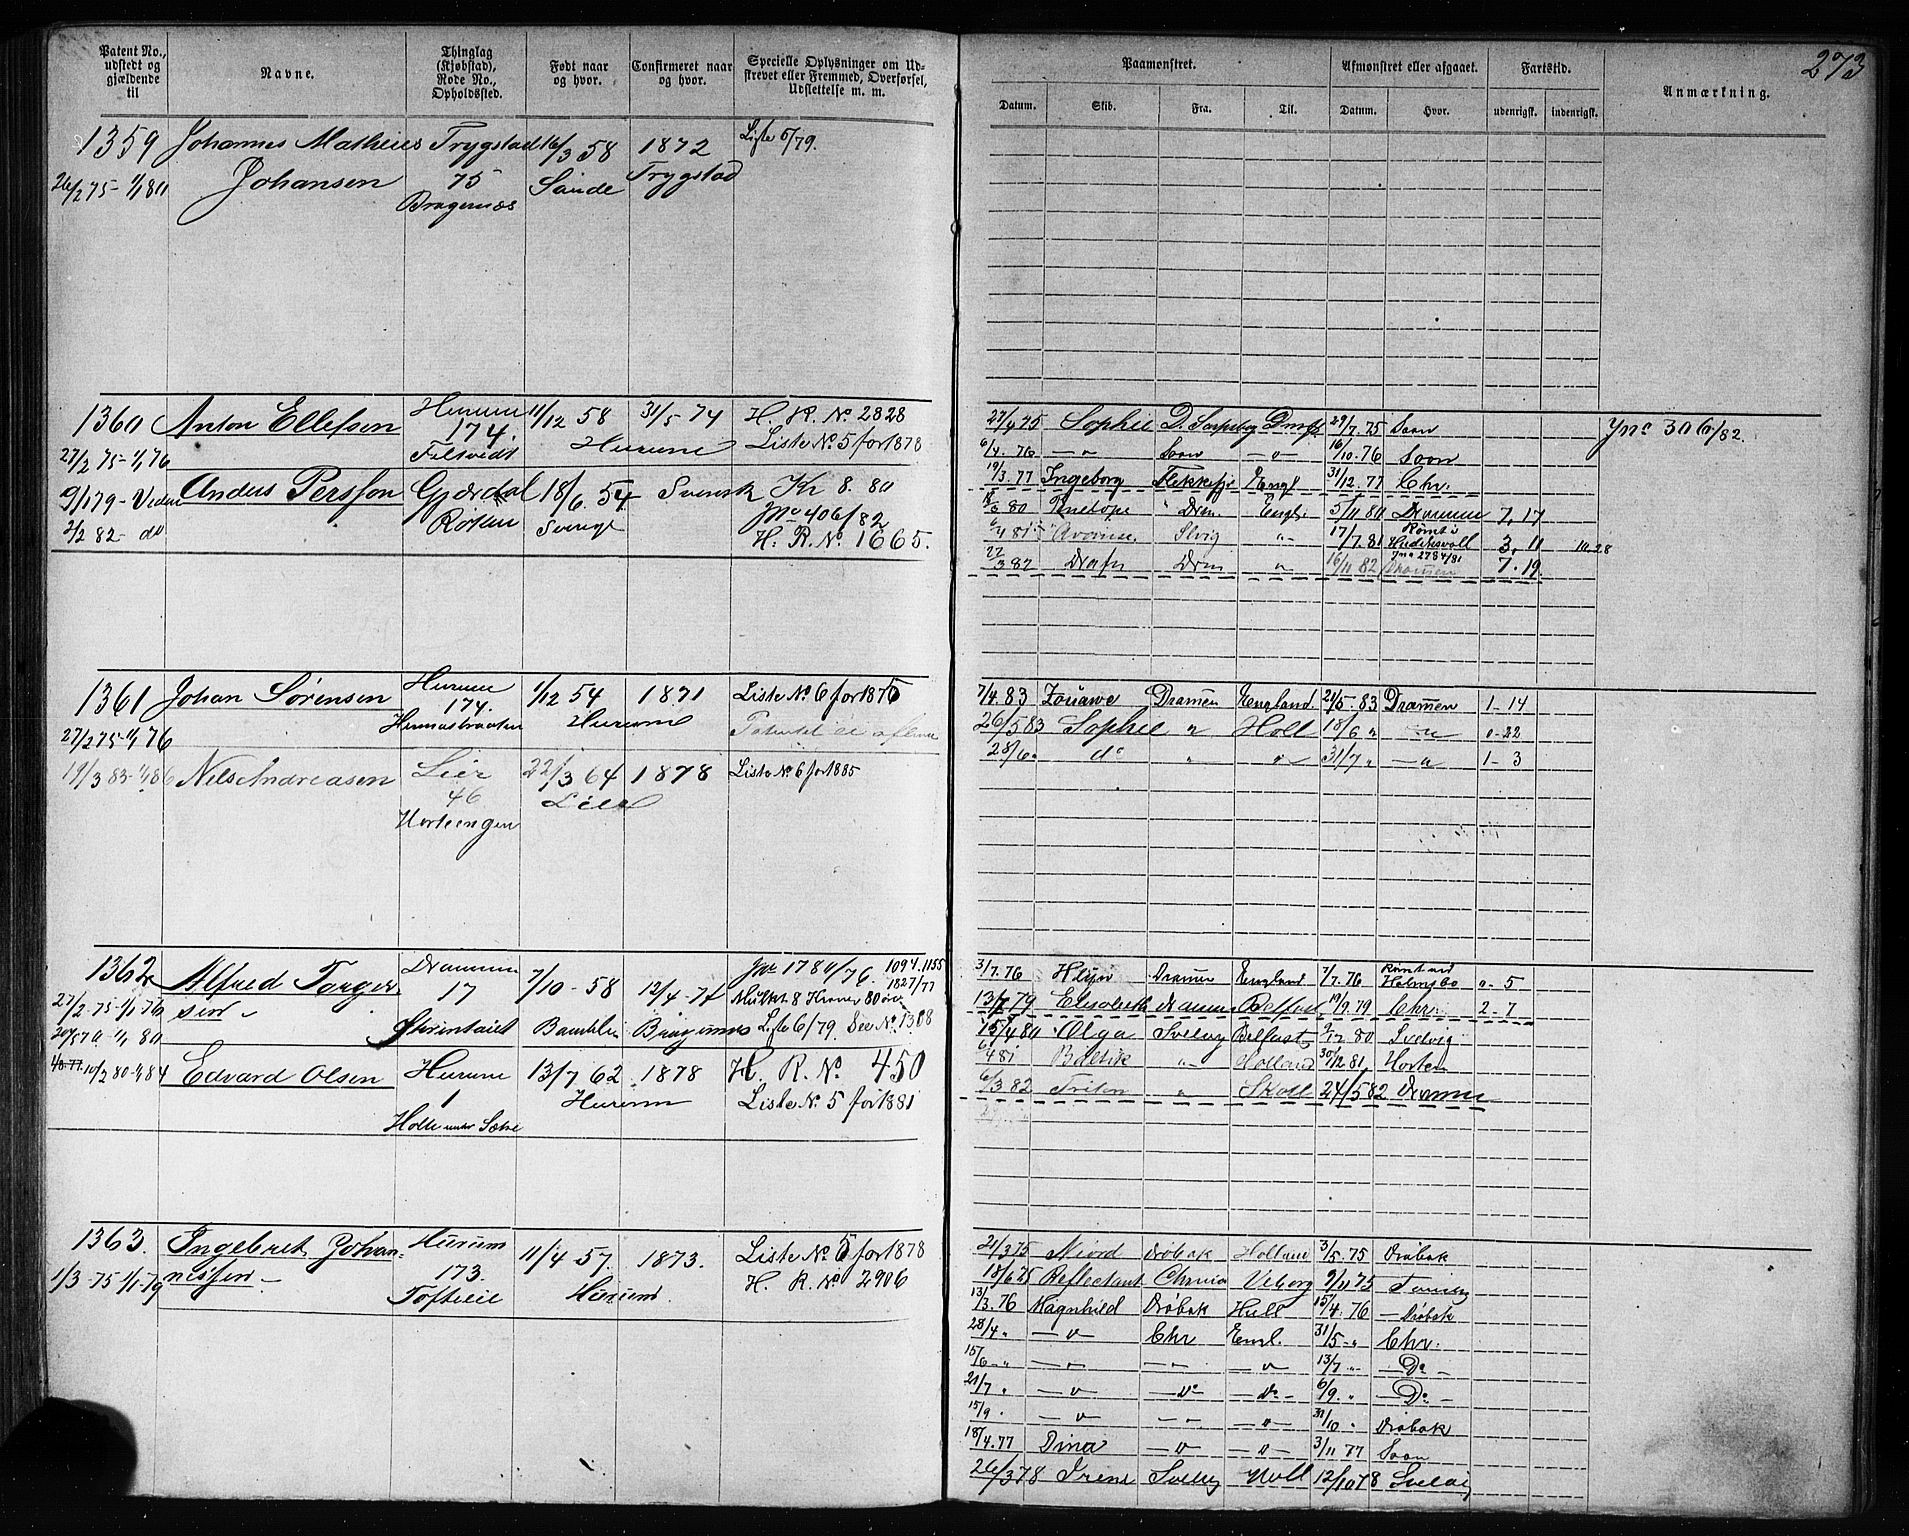 273
Patent No., udstedt og gjældende til
Navne.
Thinglag (Kjøbstad), Rode No., Opholdssted.
Født naar og hvor.
Confirmeret naar og hvor.
Specielle Oplysninger om Udskrevet eller Fremmed, Overførsel, Udslettelse m. m.
Paamønstret.
Afmønstret eller afgaaet.
Fartstid.
Anmærkning.
Datum. Skib. Fra. Til. Datum. Hvor. udenrigsk. indenrigsk.
1359 Johannes Mathias Trygstad 16/3 58 1872 Liste 6/79.
26/2 75 - 1/1 80 Johansen 75 Sande Trygstad
Bragernæs
1360 Anton Ellefsen Hurum 11/12 58 31/5 74 H. R. No. 2828
174. Hurum Liste No. 5 for 1878
27/2 75 - 1/1 76 Filtvedt
Anders Persson 18/6. 54 Svensk Kr 8. 80
Sverige Jno 406/82
2/2 82 - do H. R. No. 1665.
27/4 75 Sophie 29/7. 75 Soon Jno 306/82.
6/4. 76 Soon 16/10. 76 Soon
19/3. 77 Ingeborg Flekkefj Engl 31/12. 77 Chr.
80 Penelope Dram. Engl. 5/11 80 Drammen 7. 17
17/7. 81 Rømt i Hudiksvall 3. 11
Jno 278 4/81
22/3 82 Drafn Drm 16/11 82 Drammen 7. 19
1361 Johan Sørensen Hurum 1/12 54 1871 Liste No. 6 for 1875
174. Hurum
27/2 75 - 1/1 76
19/3 83 - 1/1 86 Nils Andreasen Lier 22/3 64 1878 Liste No. 6 for 1885
46 Lier
7/4. 83 Zouave Drammen England 21/5 - 83 Drammen 1 - 14
26/5 83 Sophie " Holl 18/6 " 0 - 22
28/6 " do " " 31/7 " 1 - 3
1362 Alfred Torger- Drammen 7/10 - 58 12/4 - 74 Jno 1780/76. 1094. 1155
1827/77
27/2 - 75 - 1/1 - 76 sen 17 Mulkt 8 Kroner 80 øre
Bamble Bragernæs Liste 6/79. See No. 1308
10/2 80 - 1/1 84 Edvard Olsen Hurum 13/7 62 1878 H. R. No. 450
1 Hurum Liste No. 5 for 1881
Holte under Sætre
3/7. 76 Drammen England 7/7. 76 Rømt ved Holmsbo 0 - 5
79 Elisabeth Drammen Belfast 19/9. 79 Chr. 2 - 7
15/4 80 Olga Svelvig Belfast 80 Svelvig
81 Baltik " Holland 30/12 81. Horten
6/3 82 Triton " Skotl 24/5 82 Drammen
1363. Ingebret Johan- Hurum 11/4 - 57. 1873. Liste No. 5 for 1878
1/3 - 75 - 1/1 - 79 nessen 173. Hurum H. R. No. 2906
Tofteeie
21/3 75 Njord Drøbak Holland 3/5. 75 Drøbak
18/6 75 Reflectant Chrania Viborg 9/11 75
13/3. 76 Ragnhild Drøbak Hull 15/4. 76 Drøbak
28/4 " Chr Engl. 31/5 - " Chr.
15/6 - " 13/7 " Do
21/7 " Do Do 6/9. " Do
15/9 " 31/10 " Drøbak
18/4. 77 Dina 3/11 77 Soon
26/3 78 Irene Svelvig Holl 12/10 78 Svelvig